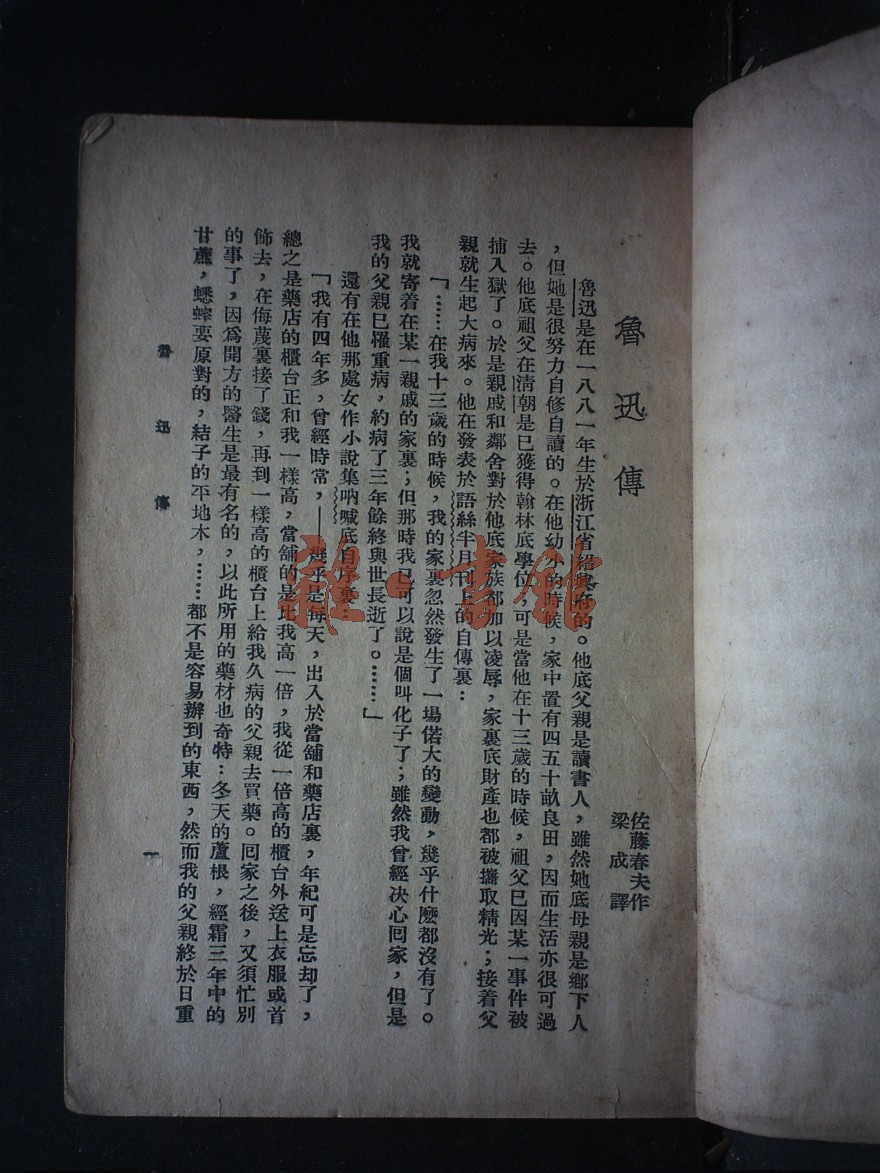 魯迅傳
佐藤春夫作
梁成譯
魯迅是在一八八一年生於浙江省紹興府的。他底父親是讀書人，雖然她底母親是鄉下人
，但她是很努力自修自讀的。在他幼小的時候，家中置有四五十畝良田，因而生活亦很可過
去。他底祖父在清朝是已獲得翰林底學位，可是當他在十三歲的時候，祖父已因某一事件被
捕入獄了。於是親戚和鄰舍對於他底家族都加以凌辱，家裏底財產也都被攫取精光；接着父
親就生起大病來。他在發表於語絲半月刊上的自傳裏：
「……在我十三歲的時候，我的家裏忽然發生了一場偌大的變動，幾乎什麽都沒有了。
我就寄着在某一親戚的家裏；但那時我已可以說是個叫化子了；雖然我曾經决心囘家，但是
我的父親已罹重病，約病了三年餘終與世長逝了。……」
還有在他那處女作小說集吶喊底自序裏：
「我有四年多，曾經時常，——幾乎是每天，出入於當舖和藥店裏，年紀可是忘却了，
總之是藥店的櫃台正和我一樣高，當舖的是比我高一倍，我從一倍高的櫃台外送上衣服或首
飾去，在侮蔑裏接了錢，再到一樣高的櫃台上給我久病的父親去買藥。囘家之後，又須忙別
的事了，因爲開方的醫生是最有名的，以此所用的藥材也奇特：冬天的蘆根，經霜三年中的
甘蔗，蟋蟀要原對的，結子的平地木，……都不是容易辦到的東西，然而我的父親終於日重
魯迅傳
一
雜·書館